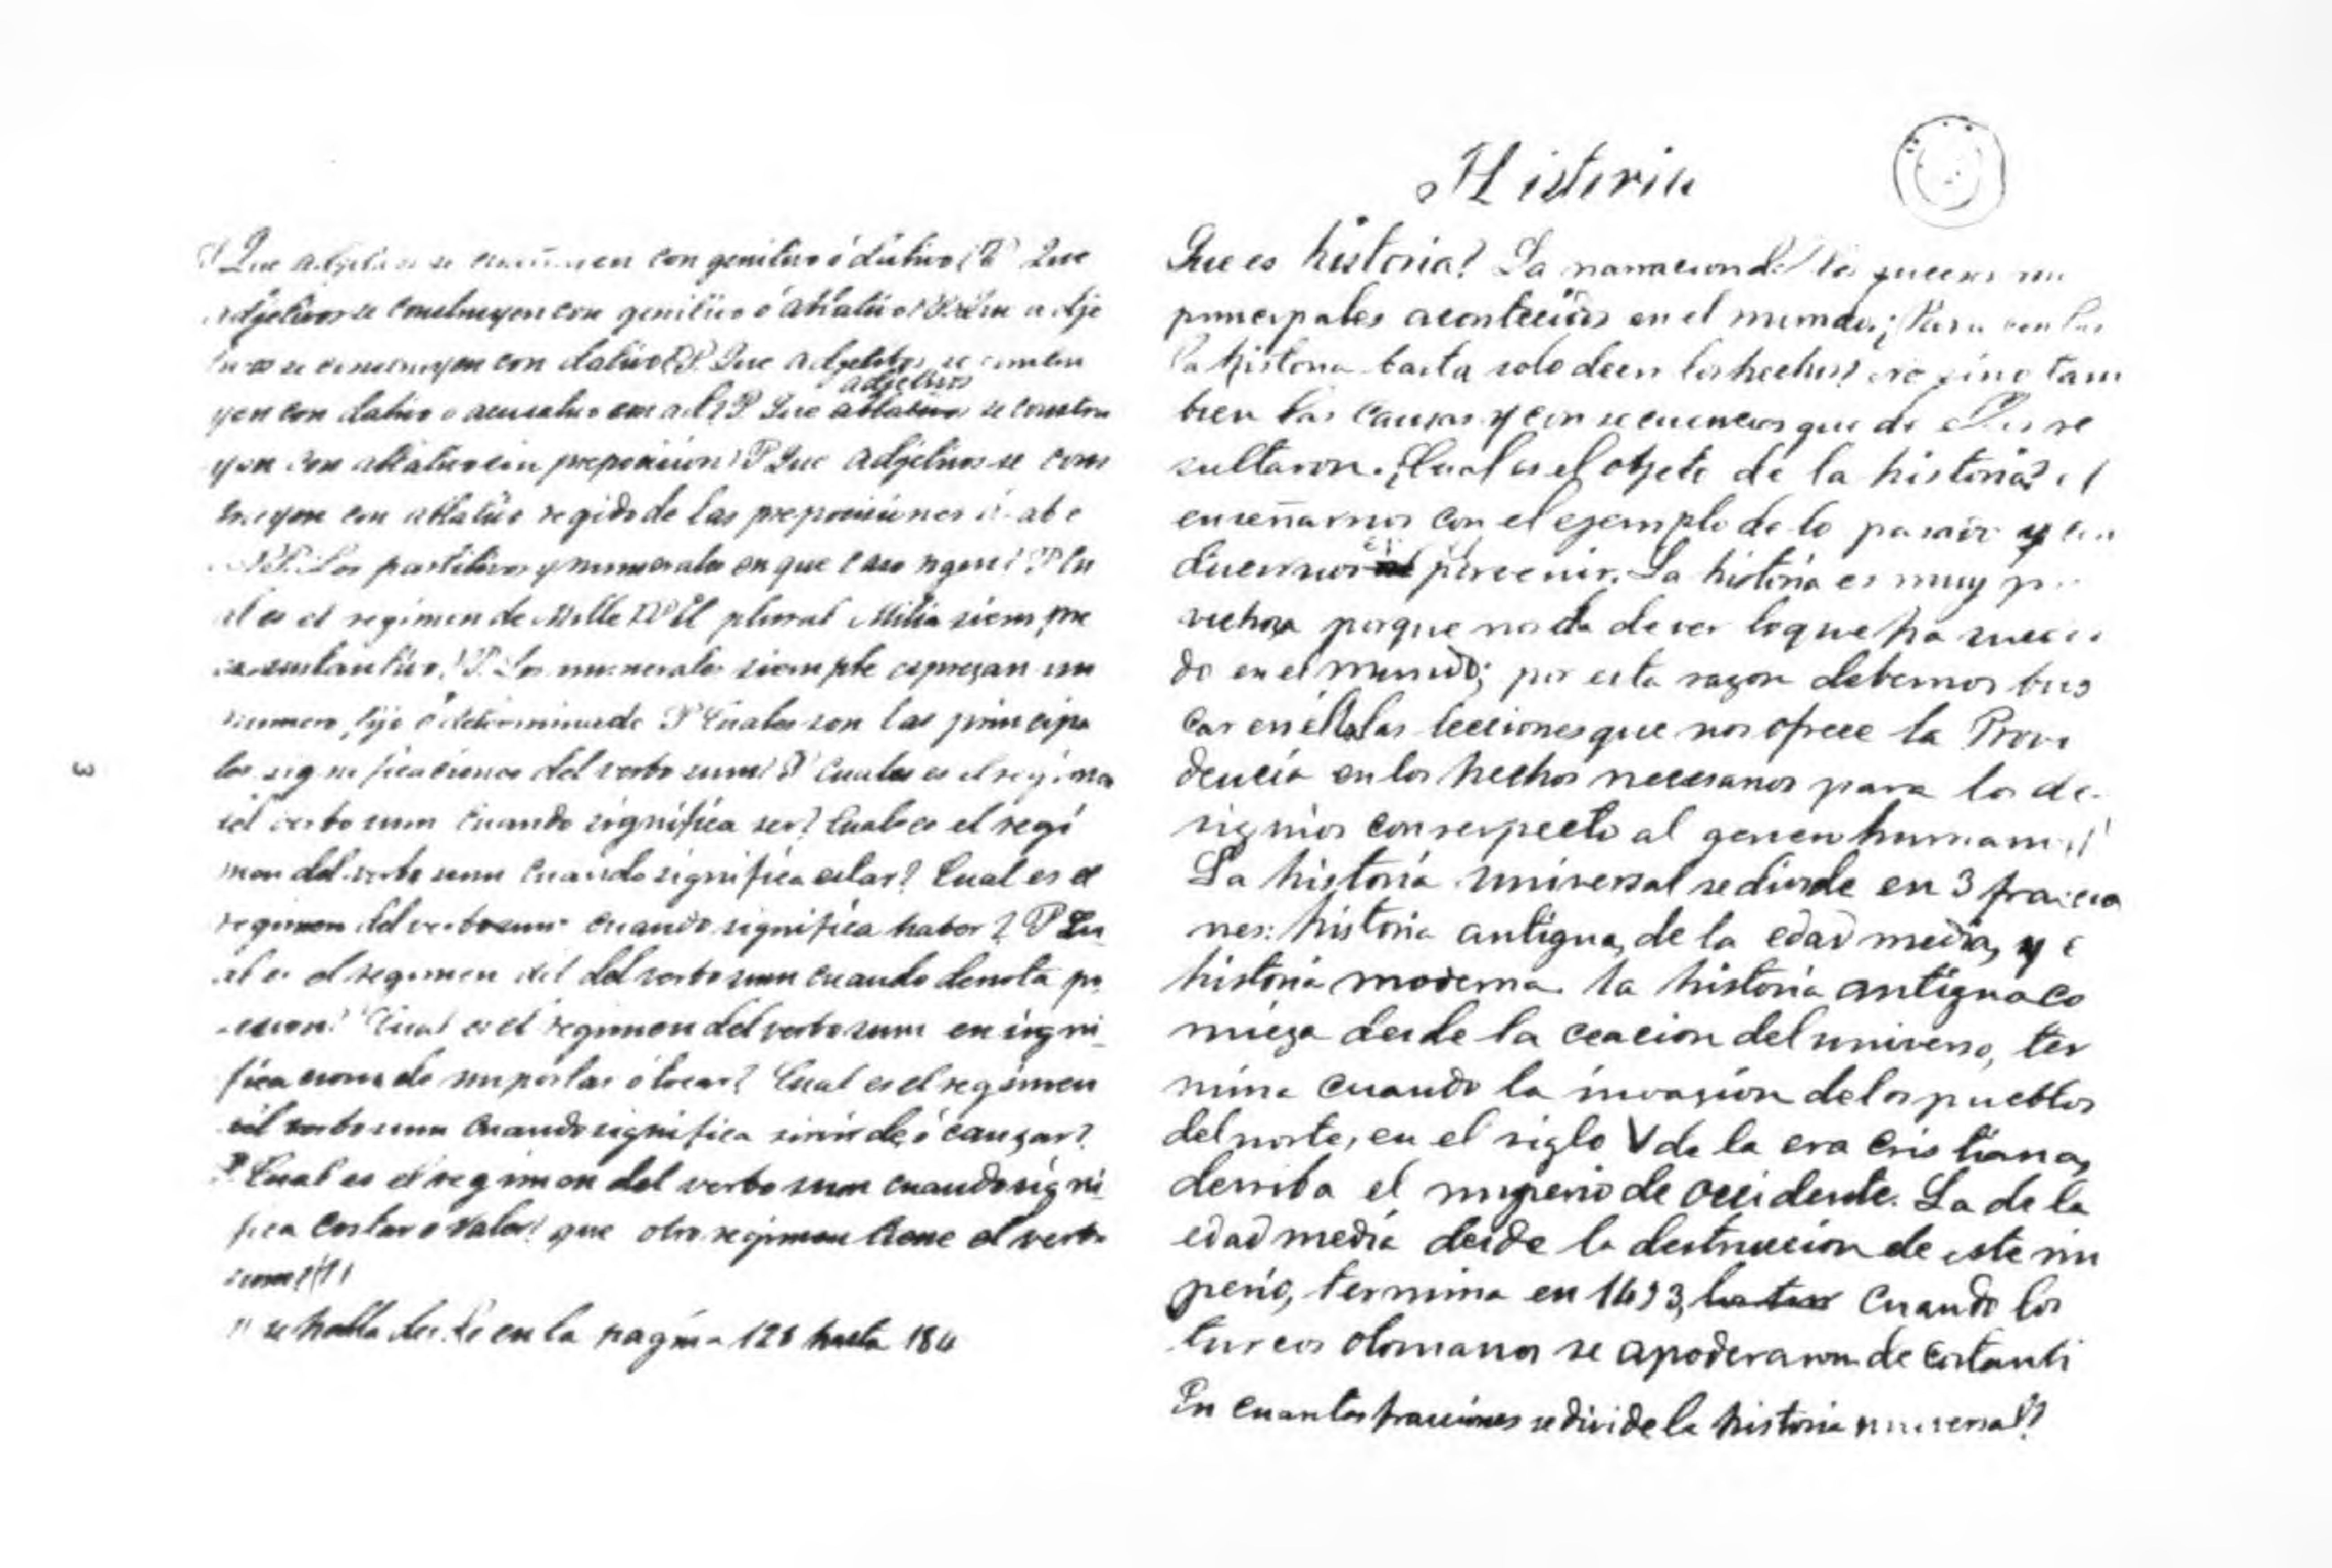 Que se con genitivo ó dativo? P Que
adjetivos se construyen con genitivo ó ablativo? P. Que adje
se construyen con dativo? P. Que adjetivos se
adjetivos
yen con dativo o acusativo con ad? P Que ablativos se constru
yen con ablativo sin preposicion? P Que adjetivos se cons
truyen con ablativo regido de las preposiciones a ab e
P. Los partitivos y numerales en que caso rigen? P Cu
al es el regimen de Mille? P El plural Milia siempre
es sustantivo? P. Los numerales siempre espresan un
numero, fijo ó determinado P Cuales son las principa
les significaciones del verbo sum? P Cuales es el regimen
del verbo sum cuando significa ser? Cuales es el regi
men del verbo sum cuando significa estar? Cual es el
regimen del verbo sum cuando significa haber? P Cu
al es el regimen del del verbo sum cuando denota po
esion? Cual es el regimen del verbo sum en signi
ficacion de importar o tocar? Cual es el regimen
del verbo sum cuando significa servir de, ó causar?
P Cual es el regimen del verbo sum cuando signi
fica costar o valer? que otro regimen tiene el verbo
sum?
se halla desde en la pagina 128 hasta 184
3
Historia
Que es historia? La narracion de los sucesos
principales acontecidos en el mundo; Para
la historia basta solo decir los hechos? no sino tam
bien las causas y consecuencias que de ellos re
sultaron. ¿Cual es el objeto de la historia? el
enseñarnos con el ejemplo de lo pasado y
el
ducirnos al porvenir. La historia es muy
vechosa porque nos da de ver lo que ha suced
do en el mundo; por esta razon debemos bus
car en ella las lecciones que nos ofrece la Provi
dencia en los hechos necesarios para los de
signios con respecto al genero humano
La historia universal se divide en 3 fraccio
nes: historia antigua, de la edad media, y
historia moderna. la historia antigua co
mieza desde la ceacion del universo, ter
mina cuando la invasion de los pueblos
del norte, en el siglo V de la era cristiana,
derriba el imperio de occidente. La de la
edad media desde la destruccion de este im
perio, termina en 1453, cuando los
turcos otomanos se apoderaron de costanti
En cuantas fracciones se divide la historia universal?